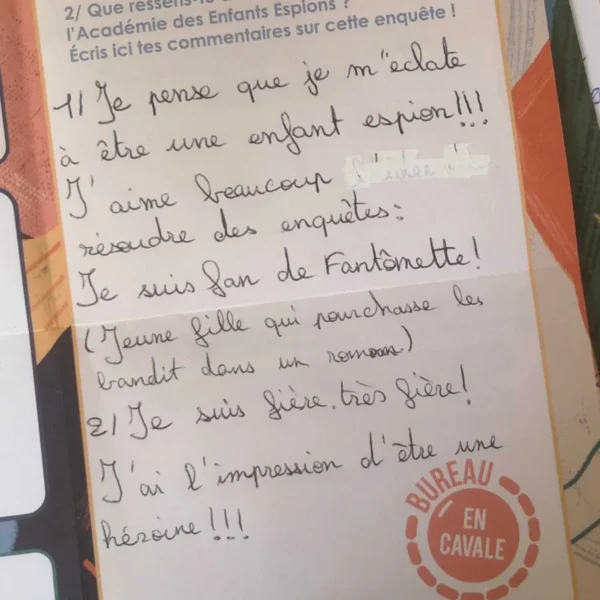 2/ Que
l'Académie des Enfants Espions ?
Écris ici tes commentaires sur cette enquête !
1/ Je pense que je m"eclate
à être une enfant espion!!!
J'aime beaucoup
résoudre des enquêtes:
Je suis fan de Fantômette!
(Jeune fille qui pourchasse les
bandit dans un roman)
2/ Je suis fière, très fière!
J'ai l'impression d'être une
héroine!!!
BUREAU
EN
CAVALE